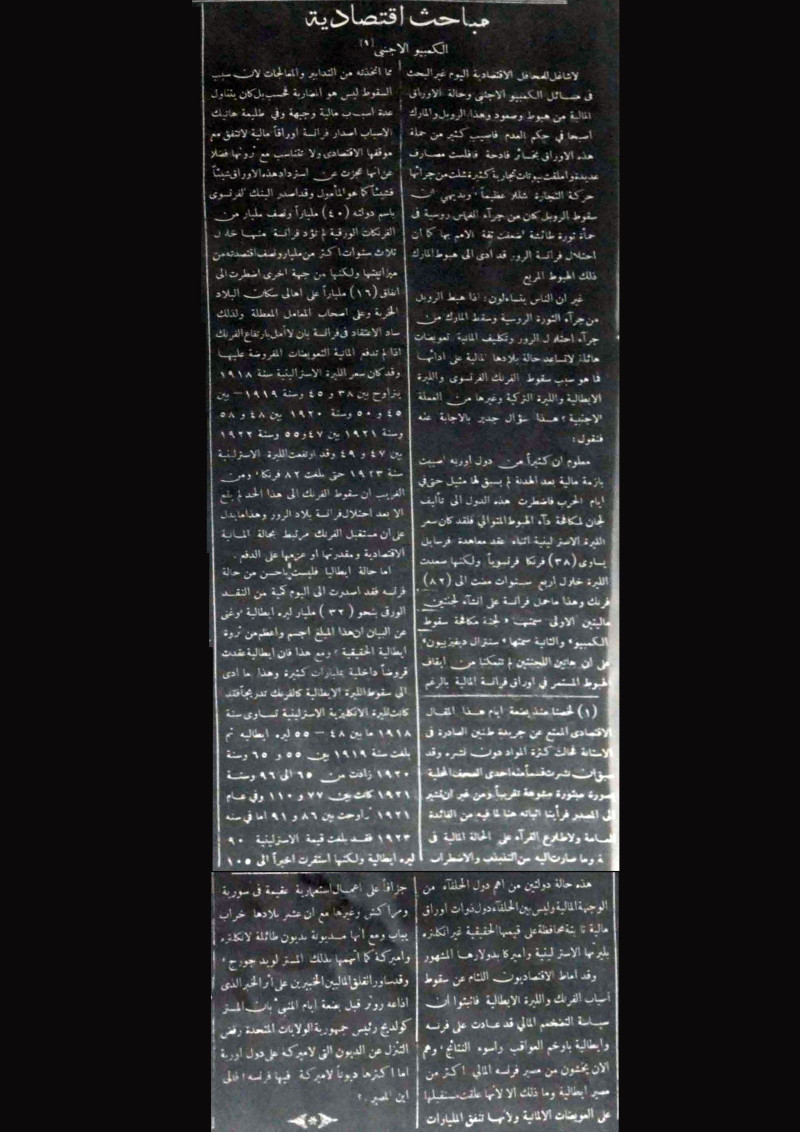 مباحث اقتصادية
الكمبيو الاجنبي (١)
لاشاغل للمحافل الاقتصادية اليوم غير البحث
في مسائل الكمبيو الاجنبي وحالة الاوراق
المالية من هبوط وصعود وهذا الروبل والمارك
اصبحا في حكم العدم فاصيب كثير من حملة
هذه الاوراق بخسائر فادحة فافلست مصارف
عديدة واملقت بيوتات تجارية كثيرة شلت من جرائها
حركة التجارة شللا عظيماً وبديهي ان
سقوط الروبل كان من جرآء انغماس روسية في
حمأة ثورة طائشة اضعفت ثقة الامم بها كما ان
احتلال فرانسة الرور قد ادى الى هبوط المارك
ذلك الهبوط المريع
غير ان الناس يتساءلون: اذا هبط الروبل
من جرآء الثورة الروسية وسقط المارك من
جرآء احتلال الرور وتكليف المانية تعويضات
هائلة لاتساعد حالة بلادها المالية على ادائها
فما هو سبب سقوط الفرنك الفرنسوي والليرة
الايطالية والليرة التركية وغيرها من العملة
الاجنبية؟ هذا سؤال جدير بالاجابة عنه
فنقول:
معلوم ان كثيراً من دول اوربه اصيبت
بازمة مالية بعد الهدنة لم يسبق لها مثيل حتى في
ايام الحرب فاضطرت هذه الدول الى تأليف
لجان لمكافحة دآء الهبوط المتوالي فلقد كان سعر
الليرة الاسترلينية اثناء عقد معاهدة فرسايل
يساوى (٣٨) فرنكا فرنسوياً ولكنها صعدت
الليرة خلال اربع سنوات مضت الى (٨٢)
فرنك وهذا ماحمل فرانسة على انشآء لجنتين
ماليتين الاولى سمتها «لجنة مكافحة سقوط
الكمبيو» والثانية سمتها «سنترال ديفيزيون»
على ان هاتين اللجنتين لم تتمكنا من ايقاف
الهبوط المستمر في اوراق فرانسة المالية بالرغم
(١) لخصنا منذ بضعة ايام هذا المقال
الاقتصادى الممتع عن جريدة طنين الصادرة في
الاستانة فحالت كثرة المواد دون نشره وقد
سبق ان نشرت قسماً منه احدى الصحف المحلية
بصورة مبتورة مشوهة تقريباً ومن غير ان تشير
الى المصدر فرأينا اثباته هنا لما فيه من الفائدة
العامة ولاطلاع القرآء على الحالة المالية في
وما صارت اليه من التذبذب والاضطراب
مما اتخذته من التدابير والمعالجات لان سبب
السقوط ليس هو المضاربة فحسب بل كان يتناول
عدة اسباب مالية وجيهة وفي طليعة هاتيك
الاسباب اصدار فرانسة اوراقاً مالية لاتتفق مع
موقفها الاقتصادى ولا تتناسب مع ثروتها فضلا
عن انها عجزت عن استرداد هذه الاوراق شيئاً
فشيئاً كما هو المأمول وقد اصدر البنك الفرنسوى
باسم دولته (٤٠) ملياراً ونصف مليار من
الفرنكات الورقية لم تؤد فرانسة منها خلال
ثلاث سنوات اكثر من مليار ونصف اقتصدته من
ميزانيتها ولكنها من جهة اخرى اضطرت الى
انفاق (١٦) ملياراً على اهالى سكان البلاد
المخربة وعلى اصحاب المعامل المعطلة ولذلك
ساد الاعتقاد في فرانسة بان لا أمل بارتفاع الفرنك
اذا لم تدفع المانية التعويضات المفروضة عليها
وقد كان سعر الليرة الاسترالينية سنة ١٩١٨
يتراوح بين ٣٨ و ٤٥ وسنة ١٩١٩ — بين
٤٥ و ٥٠ وسنة ١٩٢٠ بين ٤٨ و ٥٨
وسنة ١٩٢١ بين ٤٧ و ٥٥ وسنة ١٩٢٢
بين ٤٧ و ٤٩ وقد ارتفعت الليرة الاسترلينية
سنة ١٩٢٣ حتى بلغت ٨٢ فرنكا ومن
الغريب ان سقوط الفرنك الى هذا الحد لم يقع
الا بعد احتلال فرانسة بلاد الرور وهذا ما يدل
على ان مستقبل الفرنك مرتبط بحالة المانية
الاقتصادية ومقدرتها او عزمها على الدفع
اما حالة ايطاليا فليست باحسن من حالة
فرانسه فقد اصدرت الى اليوم كمية من النقد
الورق بنحو (٣٢) مليار ليره ايطالية وغني
عن البيان ان هذا المبلغ اجسم واعظم من ثروة
ايطالية الحقيقية ومع هذا فان ايطالية عقدت
قروضاً داخلية بمليارات كثيرة وهذا ما ادى
الى سقوط الليرة الايطالية كالفرنك تدريجاً فقد
كانت لليرة الانكليزية الاسترلينية تساوى سنة
١٩١٨ ما بين ٤٨ — ٥٥ ليره ايطاليه ثم
بلغت سنة ١٩١٩ بين ٥٥ و ٦٥ وسنة
١٩٢٠ زادت من ٦٥ الى ٩٦ وسنة
١٩٢١ كانت بين ٧٧ و ١١٠ وفي عام
١٩٢١ تراوحت بين ٨٦ و ٩١ اما في سنة
١٩٢٣ فقد بلغت قيمة الاسترلينية ٩٠
ليره ايطالية ولكنها استقرت اخيراً الى ١٠٥
هذه حالة دولتين من اهم دول الحلفآء من
الوجهة المالية وليس بين الحلفآء دول ذوات اوراق
مالية ثابتة محافظة على قيمها الحقيقية غير انكلتره
بليرتها الاسترلينية واميركا بدولارها المشهور
وقد اماط الاقتصاديون اللثام عن سقوط
أسباب الفرنك والليرة الايطالية فاثبتوا أن
سياسة التضخم المالي قد عادت على فرنسه
وايطالية باوخم العواقب واسوء النتائج وهم
الان يخشون من مصير فرنسه المالي اكثر من
مصير ايطالية وما ذلك الا لانها علقت مستقبلها
على التعويضات الالمانية ولانها تنفق المليارات
جزافاً على اعمال استعمارية عقيمة في سورية
ومراكش وغيرها مع ان عشر بلادها خراب
يباب ومع انها مديونة بديون طائلة لانكلتره
واميركة كما اتهمها بذلك المستر لويد جورج
وقد ساور القلق الماليين الخبيرين على أثر الخبر الذى
اذاعه روتر قبل بضعة ايام المنبئ بان المستر
كولديج رئيس جمهورية الولايات المتحدة رفض
التنزل عن الديون التى لاميركة على دول اوربة
اما اكثرها ديوناً لاميركة فيها فرنسه؛ فالى
اين المصير.؟